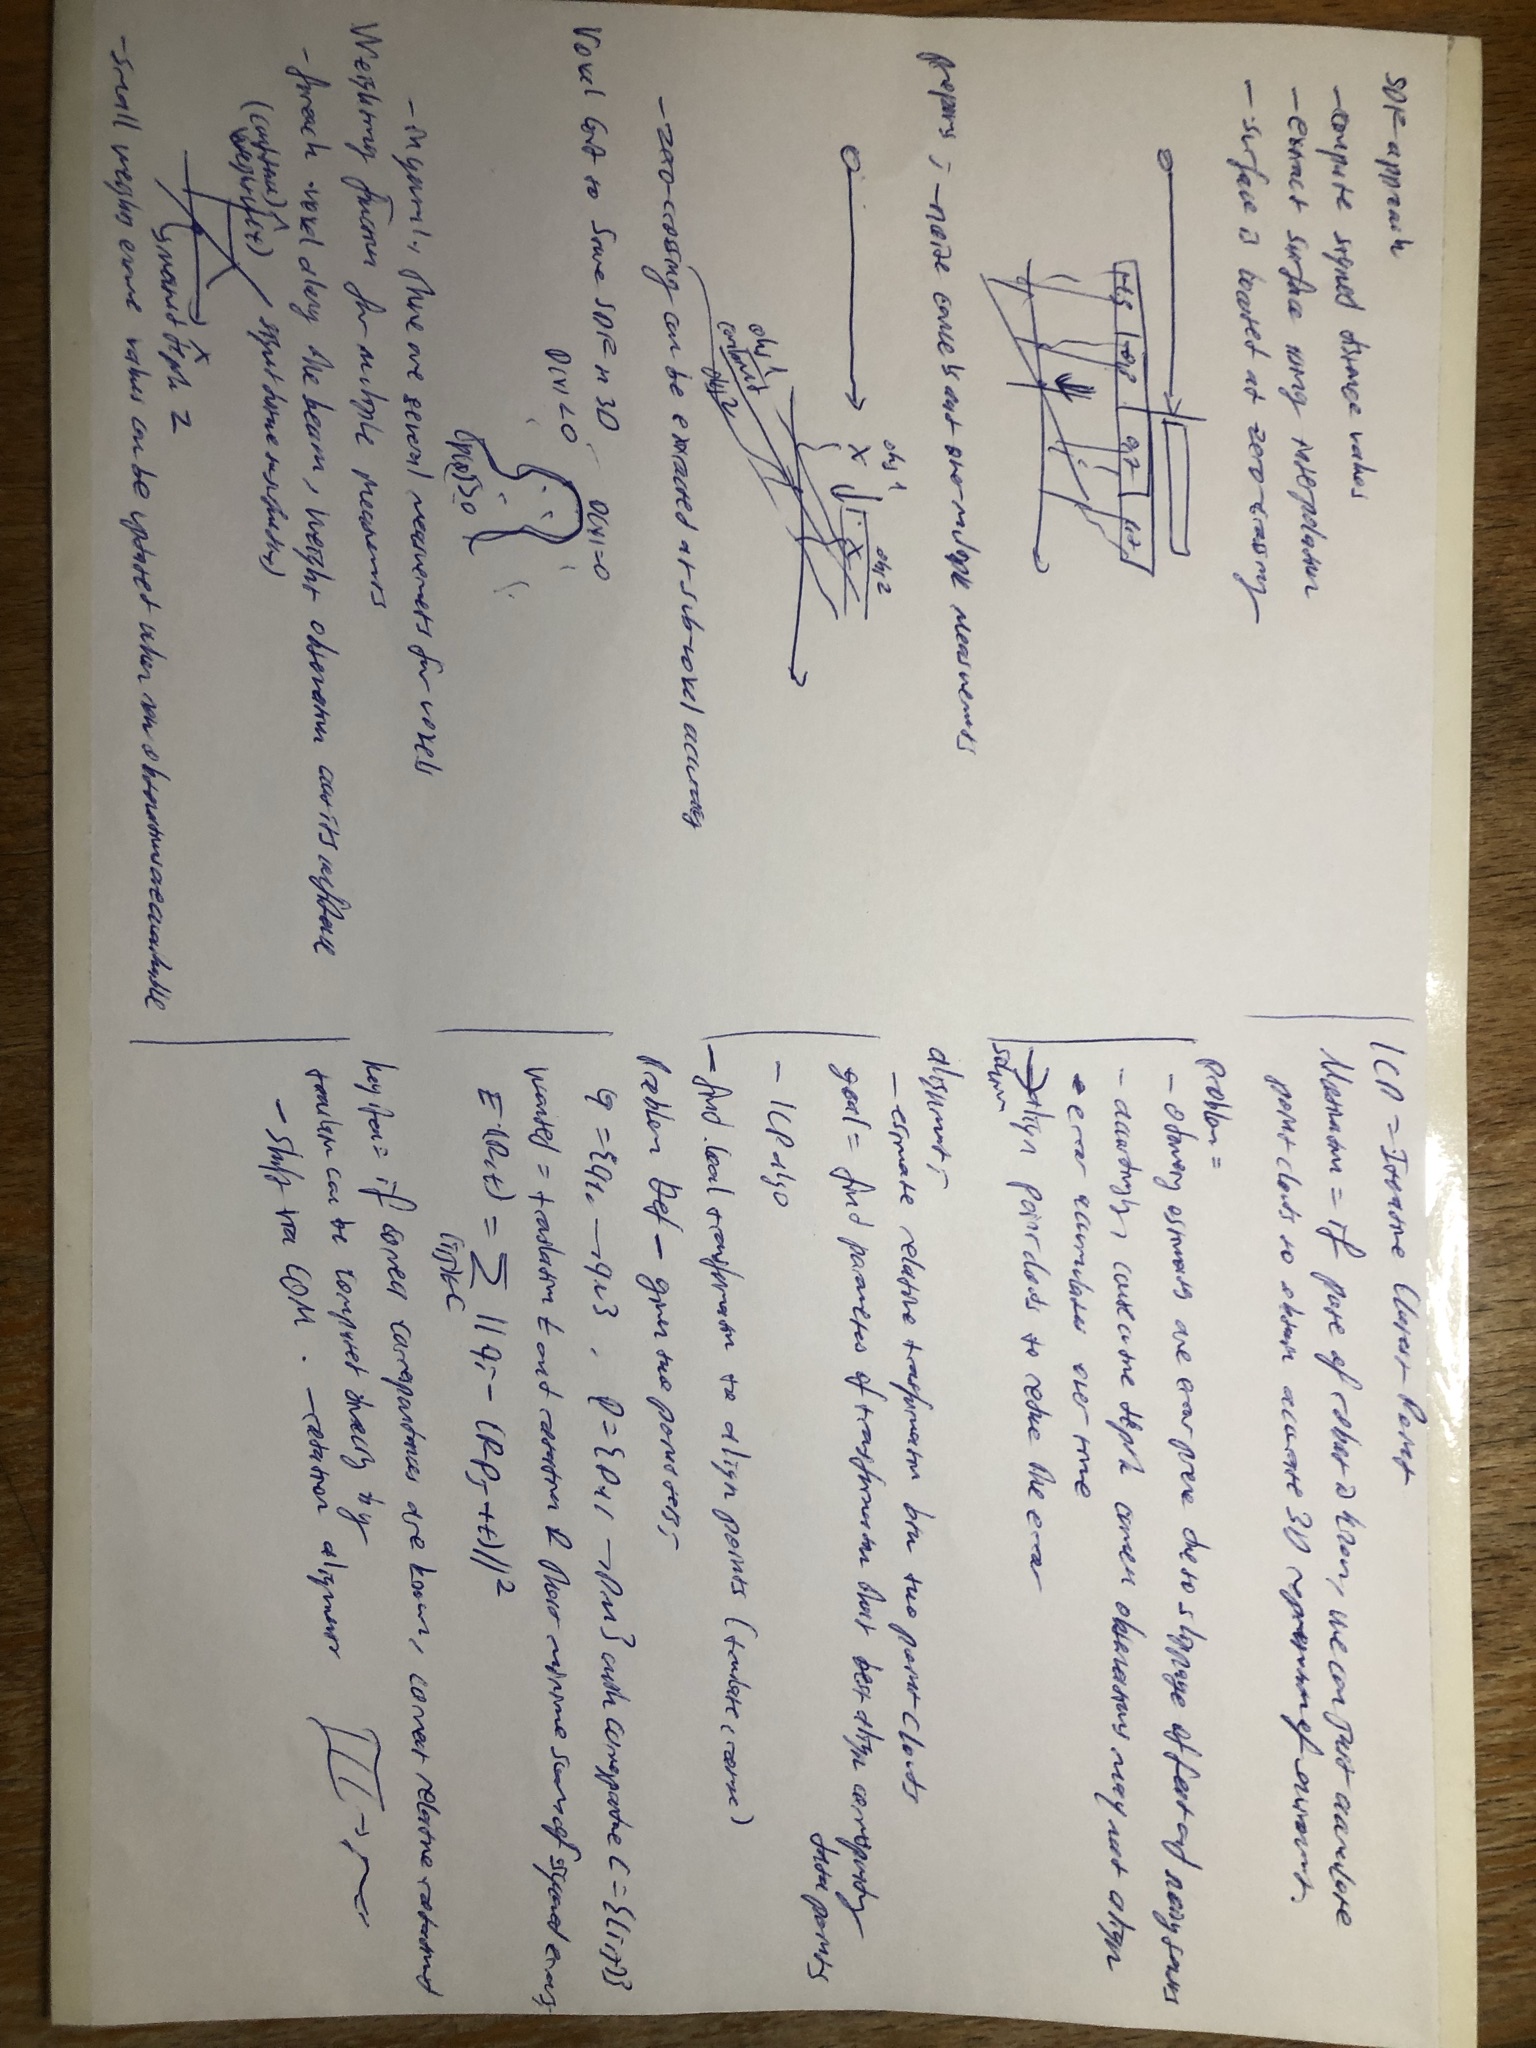 SDF-approach
- compute signed distance values
- extract surface using interpolation
- surface is located at zero-crossing
- noise cancels out over multiple measurements
obj 1
obj 2
obj 1
obj 2
- zero-crossing can be extracted at sub-voxel accuracy
Voxel Grid to Save SDF in 3D
D(x) < 0
D(x) = 0
D(x) > 0
- In general, there are several measurements for voxels
Weighting function for multiple measurements
- for each voxel along the beam, weight observation
(weight)
signed distance
measured depth z
- small weights values can be updated when new observations are available
ICP = Iterative Closest Point
Motivation = if pose of robot is known, we can just accumulate
point clouds to obtain accurate 3D of environment.
problem =
- Odometry estimates are error prone due to slippage of feet and noisy
- accordingly, consecutive depth camera observations may not align
error accumulates over time
→ align point clouds to reduce the error
solution
alignment;
- estimate relative transformation btw two point clouds
goal = find parameters of transformation that best align corresponding
data points
- ICP algo
- find local transformation to align points (translate, rotate)
Problem Def - given two point sets;
wanted = translation t and rotation R that minimize sum of squared error;
E(R,t) = Σ || qi - (Rpj + t) ||²
(i,j)∈C
key idea = if correct correspondences are known, correct relative rotation and
translation can be computed directly by
- shift via COM. - rotation alignment